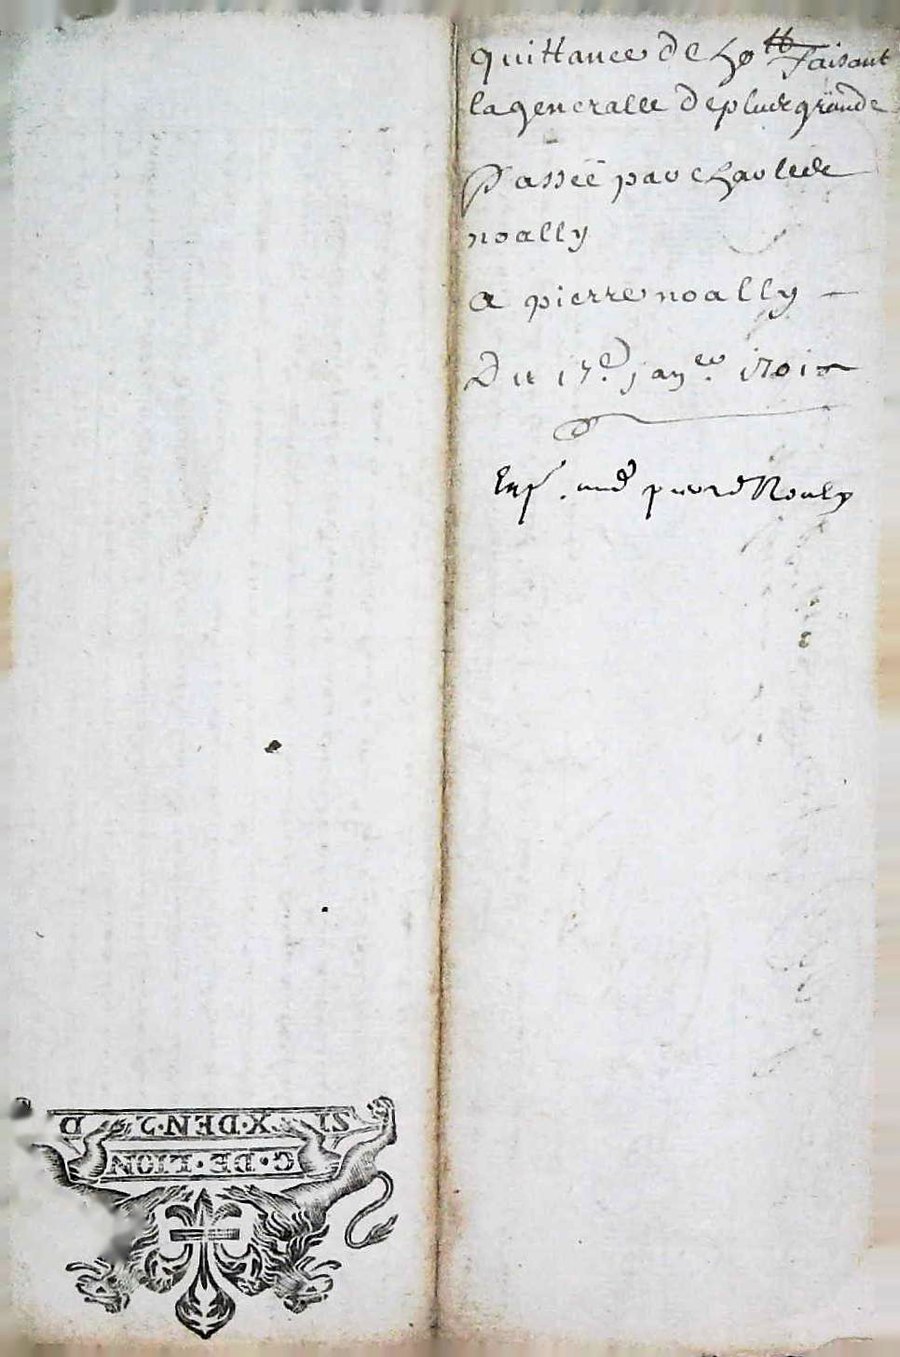 quittance de 50 ₶ faisant
la generalle de plus grande
Passée par Charles de
noally
a pierre noally —
Du 17e janer 1701
pierre Noaly
SIX·DEN·
G·DE·LION